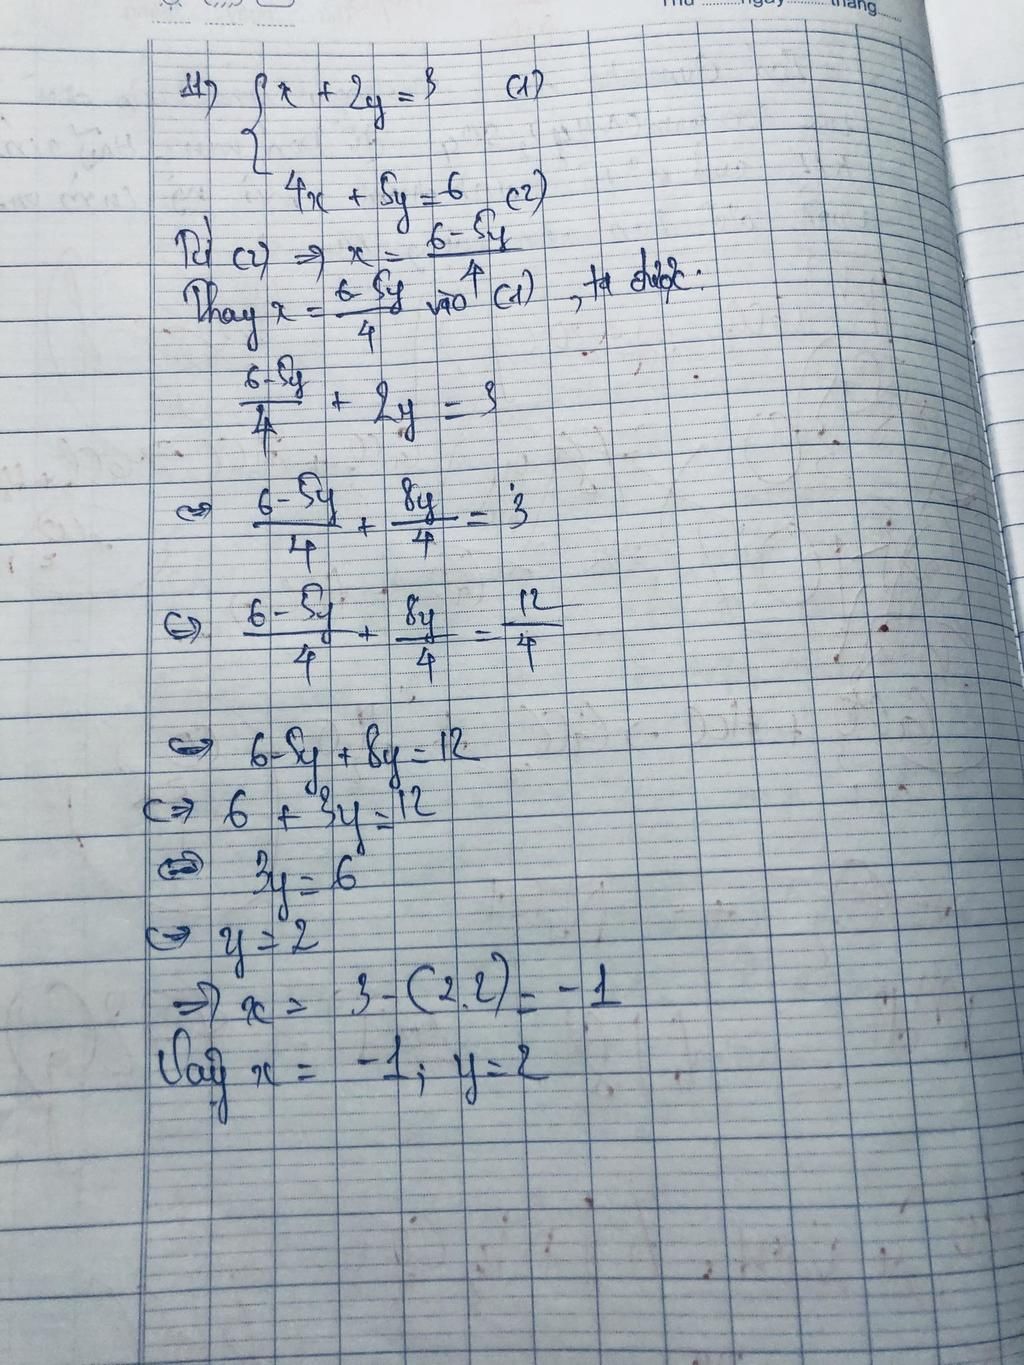 Thứ ngày tháng
11) { x + 2y = 3 (1)
4x + 5y = 6 (2)
Từ (2) => x = (6 - 5y)/4
Thay x = (6 - 5y)/4 vào (1), ta được:
(6 - 5y)/4 + 2y = 3
<=> (6 - 5y)/4 + 8y/4 = 3
<=> (6 - 5y)/4 + 8y/4 = 12/4
<=> 6 - 5y + 8y = 12
<=> 6 + 3y = 12
<=> 3y = 6
<=> y = 2
=> x = 3 - (2.2) = -1
Vậy x = -1; y = 2